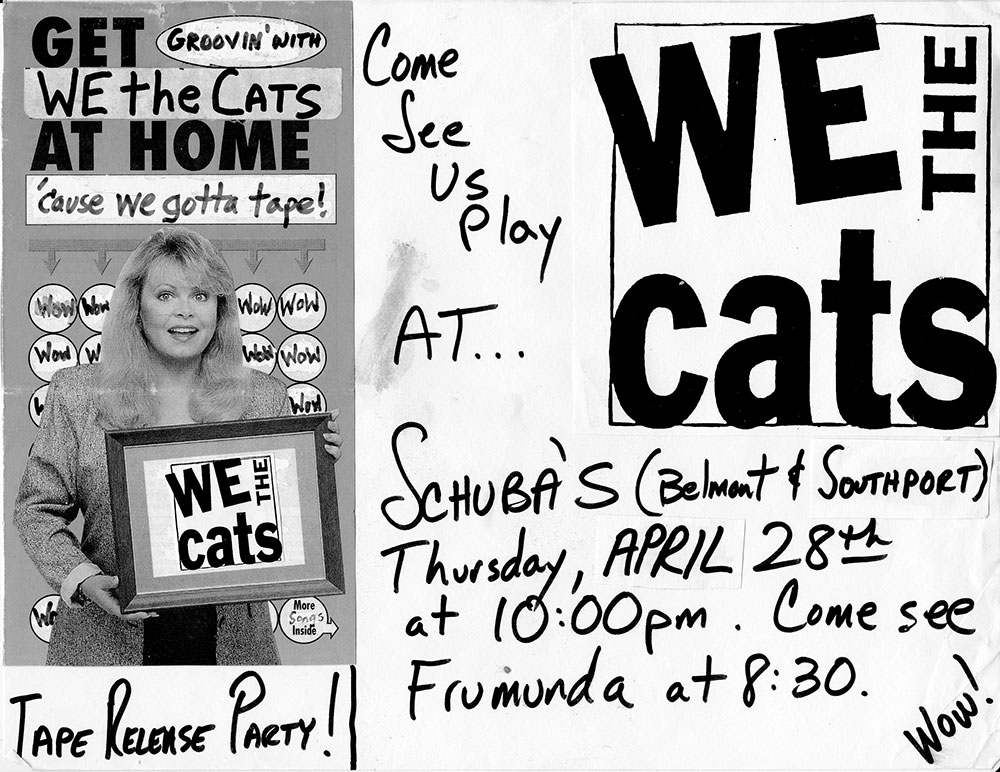 GET GROOVIN' WITH
WE the CATS
AT HOME
'cause we gotta tape!
Wow Wow Wow Wow
Wow W Wow Wow
W Wow
WE THE
cats
Wo
More
Songs
Inside
TAPE RELEASE PARTY!
Come
See
Us
Play
AT...
WE THE
cats
SCHUBA'S (Belmont & SOUTHPORT)
Thursday, APRIL 28th
at 10:00pm. Come see
Frumunda at 8:30.
Wow!